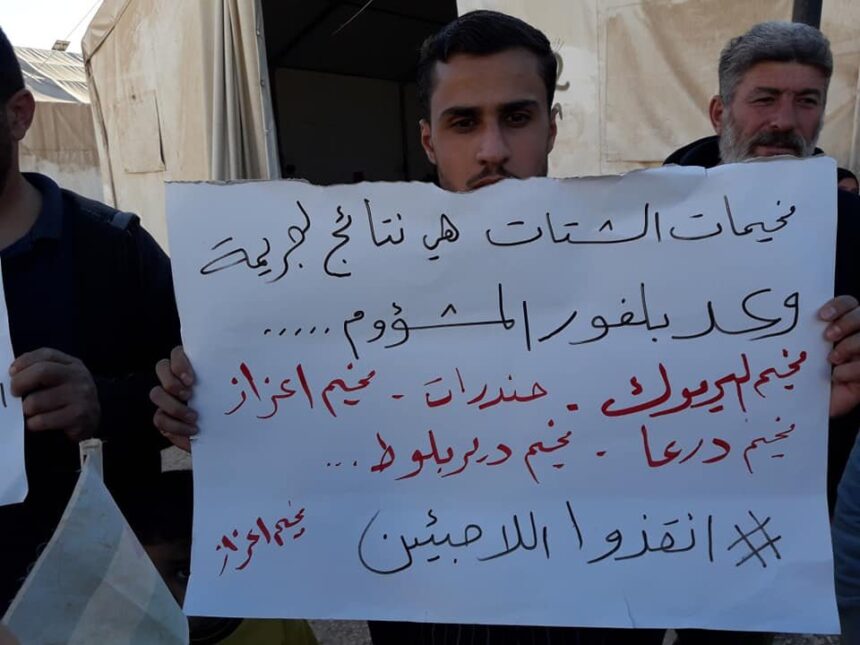 مخيمات الشتات هي نتائج لجريمة
وعد بلفور المشؤوم .....
مخيم اليرموك - حندرات - مخيم اعزاز
مخيم درعا - مخيم دير بلوط ...
#انقذوا اللاجئين
مخيم اعزاز